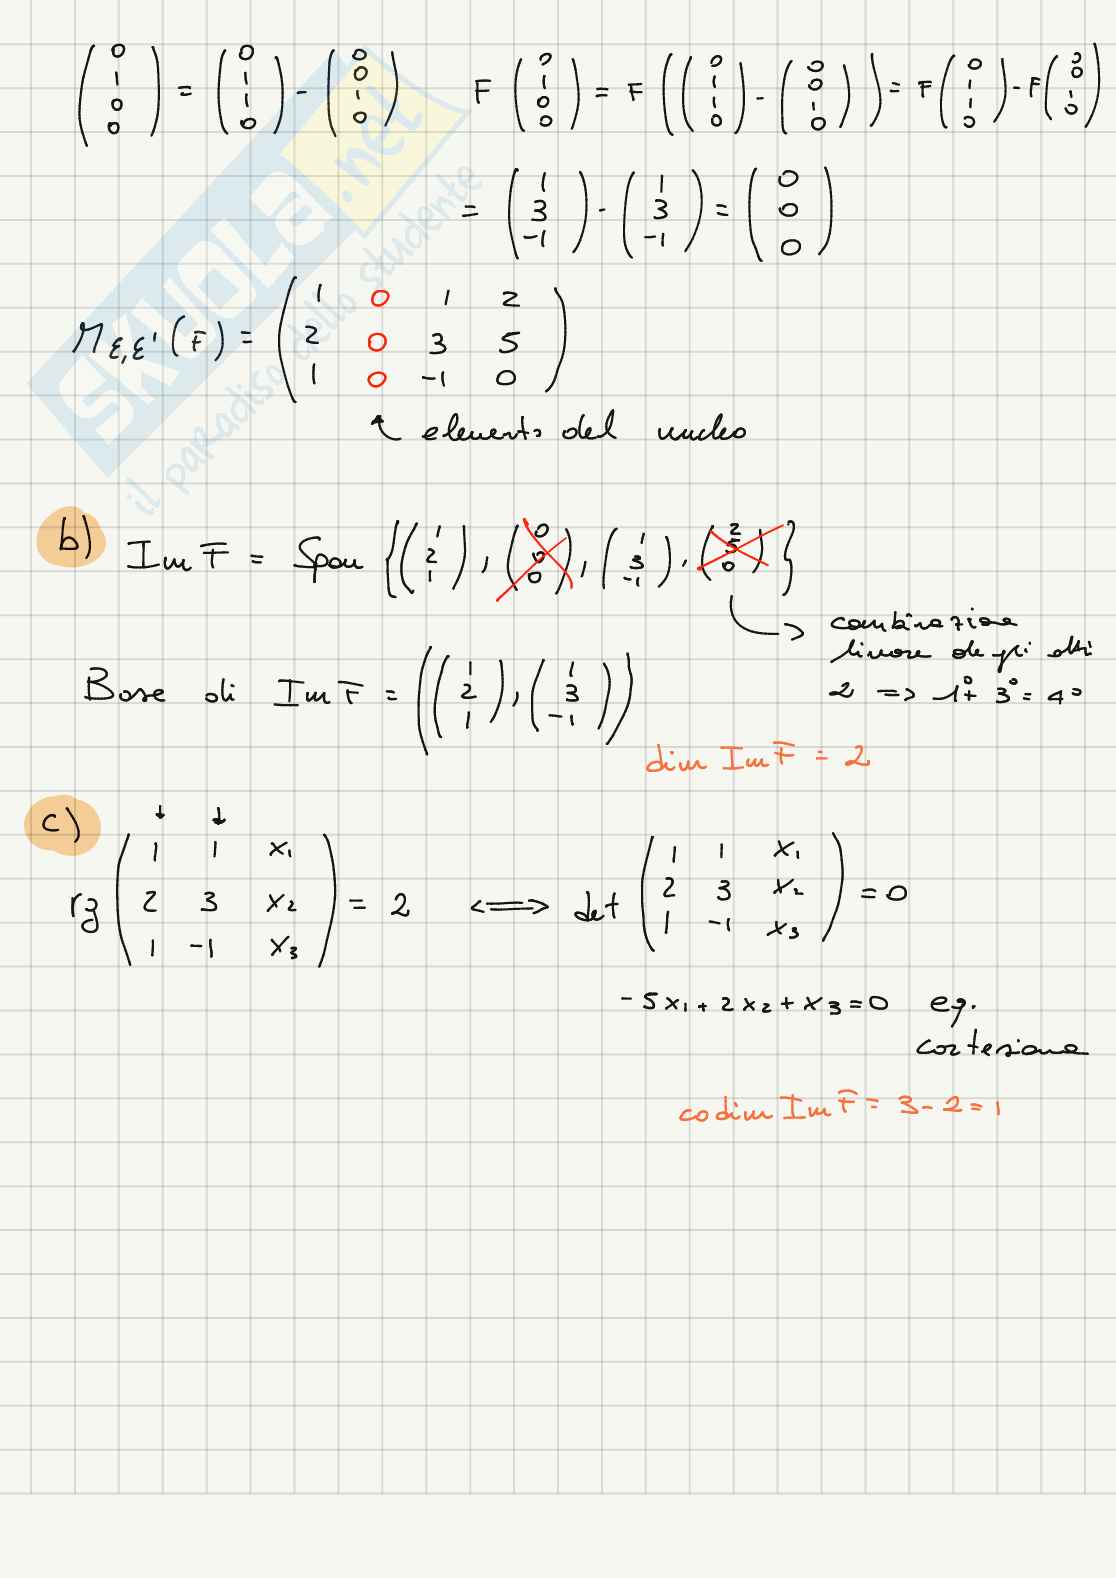 (0 1 0 0) = (0 1 1 0) - (0 0 1 0)   F (0 1 0 0) = F ((0 1 1 0) - (0 0 1 0)) = F (0 1 1 0) - F (0 0 1 0)
= (1 3 -1) - (1 3 -1) = (0 0 0)
M ε,ε' (F) = (1 0 1 2
2 0 3 5
1 0 -1 0)
elemento del nucleo
b) Im F = Span {(1 2 1), (0 0 0), (1 3 -1), (2 5 0)}
combinazione
lineare degli altri
2 => 1° + 3° = 4°
Base di Im F = ((1 2 1), (1 3 -1))
dim Im F = 2
c)
rg (1 1 x1
2 3 x2
1 -1 x3) = 2 <=> det (1 1 x1
2 3 x2
1 -1 x3) = 0
-5x1 + 2x2 + x3 = 0 eq.
cartesiana
codim Im F = 3 - 2 = 1
SKUOLA.net
il paradiso dello studente